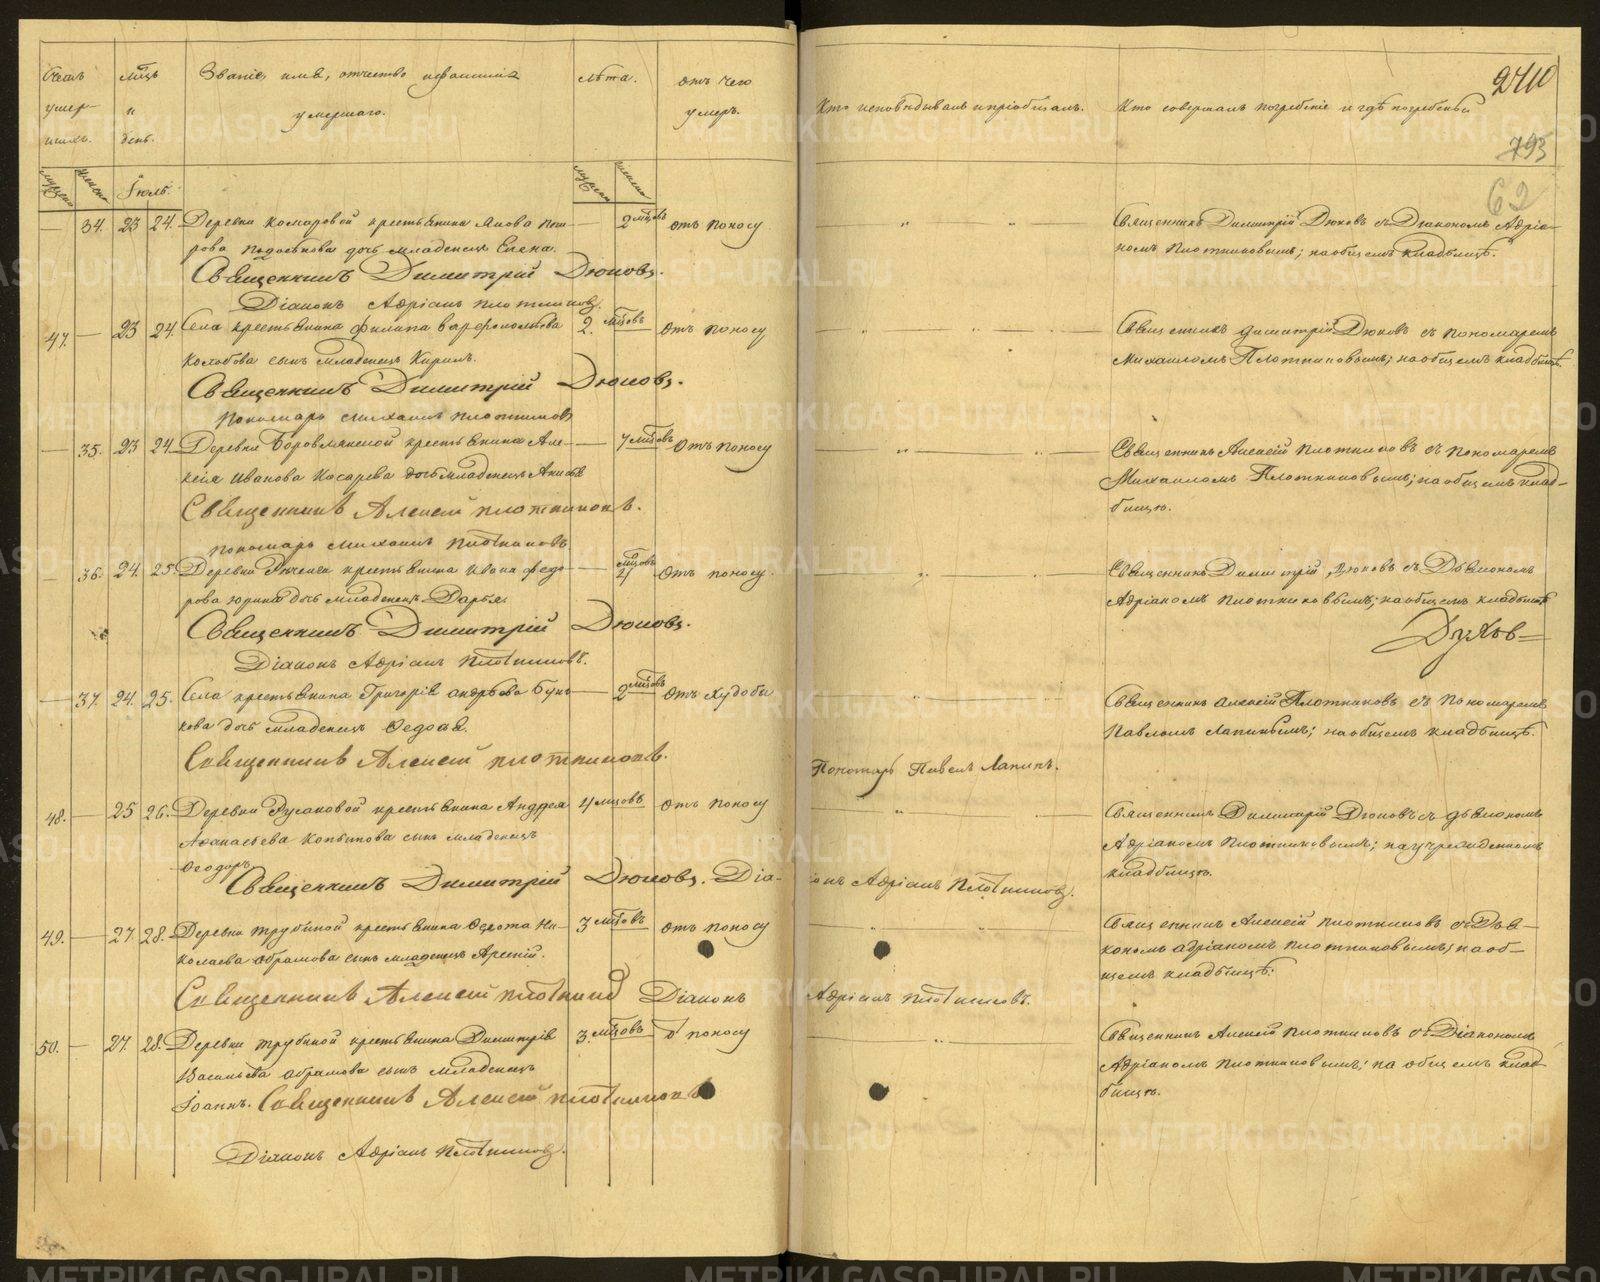 Счетъ умершихъ.
Мѣсяцъ и день.
Званіе, имя, отчество и фамилія умершаго.
Лѣта.
Отъ чего умеръ.
Кто исповѣдывалъ и пріобщалъ.
Кто совершалъ погребеніе и гдѣ погребены
2410
793
62
Іюль.
34. 23 24. Деревни Комаровой крестьянина
дочь младенецъ Елена.
2 мѣсяцовъ
отъ поносу
Священникъ Димитрій Дюковъ съ Діакономъ Адріа-
номъ Плотниковымъ; на общемъ кладбищѣ.
Священникъ Димитрій Дюковъ.
Діаконъ Адріанъ Плотниковъ.
47. 23 24. Села крестьянина Филипа Варфоломѣева
сынъ младенецъ Кирилъ.
2. мѣсяцовъ
отъ поносу
Священникъ Димитрій Дюковъ съ пономаремъ
Михаиломъ Плотниковымъ; на общемъ кладбищѣ.
Священникъ Димитрій Дюковъ.
Пономарь Михаилъ Плотниковъ
35. 23 24. Деревни Боровлянской крестьянина Але-
ксѣя Иванова Косарева дочь младенецъ
7 мѣсяцовъ
Отъ поносу
Священникъ Алексѣй Плотниковъ съ пономаремъ
Михаиломъ Плотниковымъ; на общемъ клад-
бищѣ.
Священникъ Алексѣй Плотниковъ.
пономарь Михаилъ Плотниковъ
36. 24. 25. Деревни крестьянина Ивана Федо-
рова дочь младенецъ Дарья.
мѣсяцовъ
Отъ поносу.
Священникъ Димитрій Дюковъ съ Діакономъ
Адріаномъ Плотниковымъ; на общемъ кладбищѣ
Священникъ Димитрій Дюковъ.
Діаконъ Адріанъ Плотниковъ.
37. 24. 25. Села крестьянина Григорія Андрѣева Бунь-
кова дочь младенецъ Федосья.
2 мѣсяцовъ
Отъ худобы
Священникъ Алексѣй Плотниковъ съ Пономаремъ
Павломъ Лапинымъ; на общемъ кладбищѣ.
Священникъ Алексѣй Плотниковъ.
Пономарь Павелъ Лапинъ.
48. 25 26. Деревни Русаковой крестьянина Андрея
Афанасьева Копытова сынъ младенецъ
Феодоръ.
4 мѣсяцовъ
отъ поносу
Священникъ Димитрій Дюковъ съ дьякономъ
Адріаномъ Плотниковымъ; на учрежденномъ
кладбищѣ.
Священникъ Димитрій Дюковъ. Діа-
конъ Адріанъ Плотниковъ.
49. 27. 28. Деревни Трубиной крестьянина Федота Ни-
колаева Абрамова сынъ младенецъ Арсеній.
3 мѣсяцовъ
отъ поносу
Священникъ Алексѣй Плотниковъ съ Дья-
кономъ Адріаномъ Плотниковымъ; на об-
щемъ кладбищѣ.
Священникъ Алексѣй Плотников Діаконъ
Адріанъ Плотниковъ.
50. 27. 28. Деревни Трубиной крестьянина Димитрія
Васильева Абрамова сынъ младенецъ
Іоаннъ.
3. мѣсяцовъ
отъ поносу
Священникъ Алексѣй Плотниковъ съ Діакономъ
Адріаномъ Плотниковымъ; на общемъ клад-
бищѣ.
Священникъ Алексѣй Плотниковъ
Діаконъ Адріанъ Плотниковъ.
METRIKI.GASO-URAL.RU